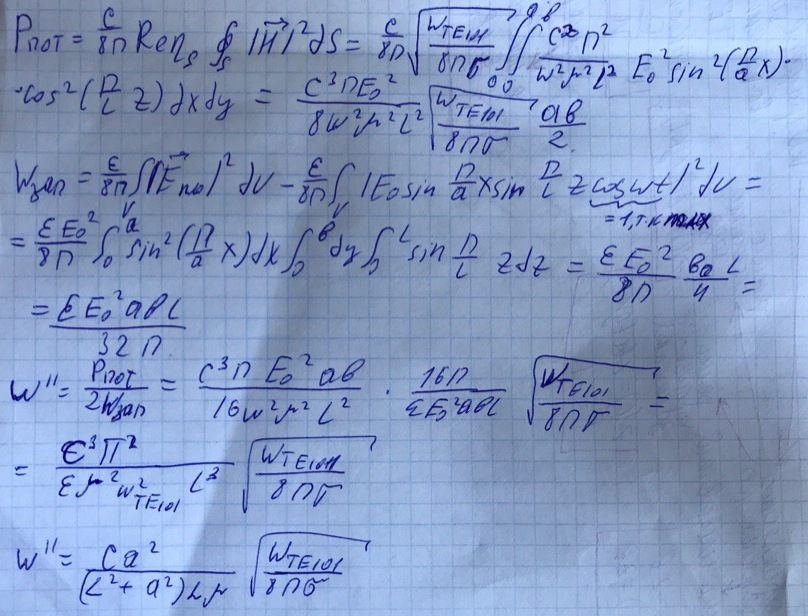 Pпот = c/8π Re η_s ∮_s |H⃗|² ds = c/8π √(ω_TE101/8πσ) ∫₀^a ∫₀^b c²π²/ω²μ²L² E₀² sin²(π/a x)·
·cos²(π/L z) dx dy = c³πE₀²/8ω²μ²L² √(ω_TE101/8πσ) ab/2
Wзап = ε/8π ∫_V |E⃗_по|² dV - ε/8π ∫_V |E₀ sin π/a x sin π/L z cos ωt|² dV =
= 1, т.к max
= εE₀²/8π ∫₀^a sin²(π/a x) dx ∫₀^b dy ∫₀^L sin π/L z dz = εE₀²/8π baL/4 =
= εE₀² abL/32π
ω'' = Pпот/2Wзап = c³π E₀² ab/16ω²μ²L² · 16π/εE₀²abL √(ω_TE101/8πσ) =
= c³π²/εμ²ω²_TE101 L³ √(ω_TE101/8πσ)
ω'' = ca²/(L²+a²)Lμ √(ω_TE101/8πσ)